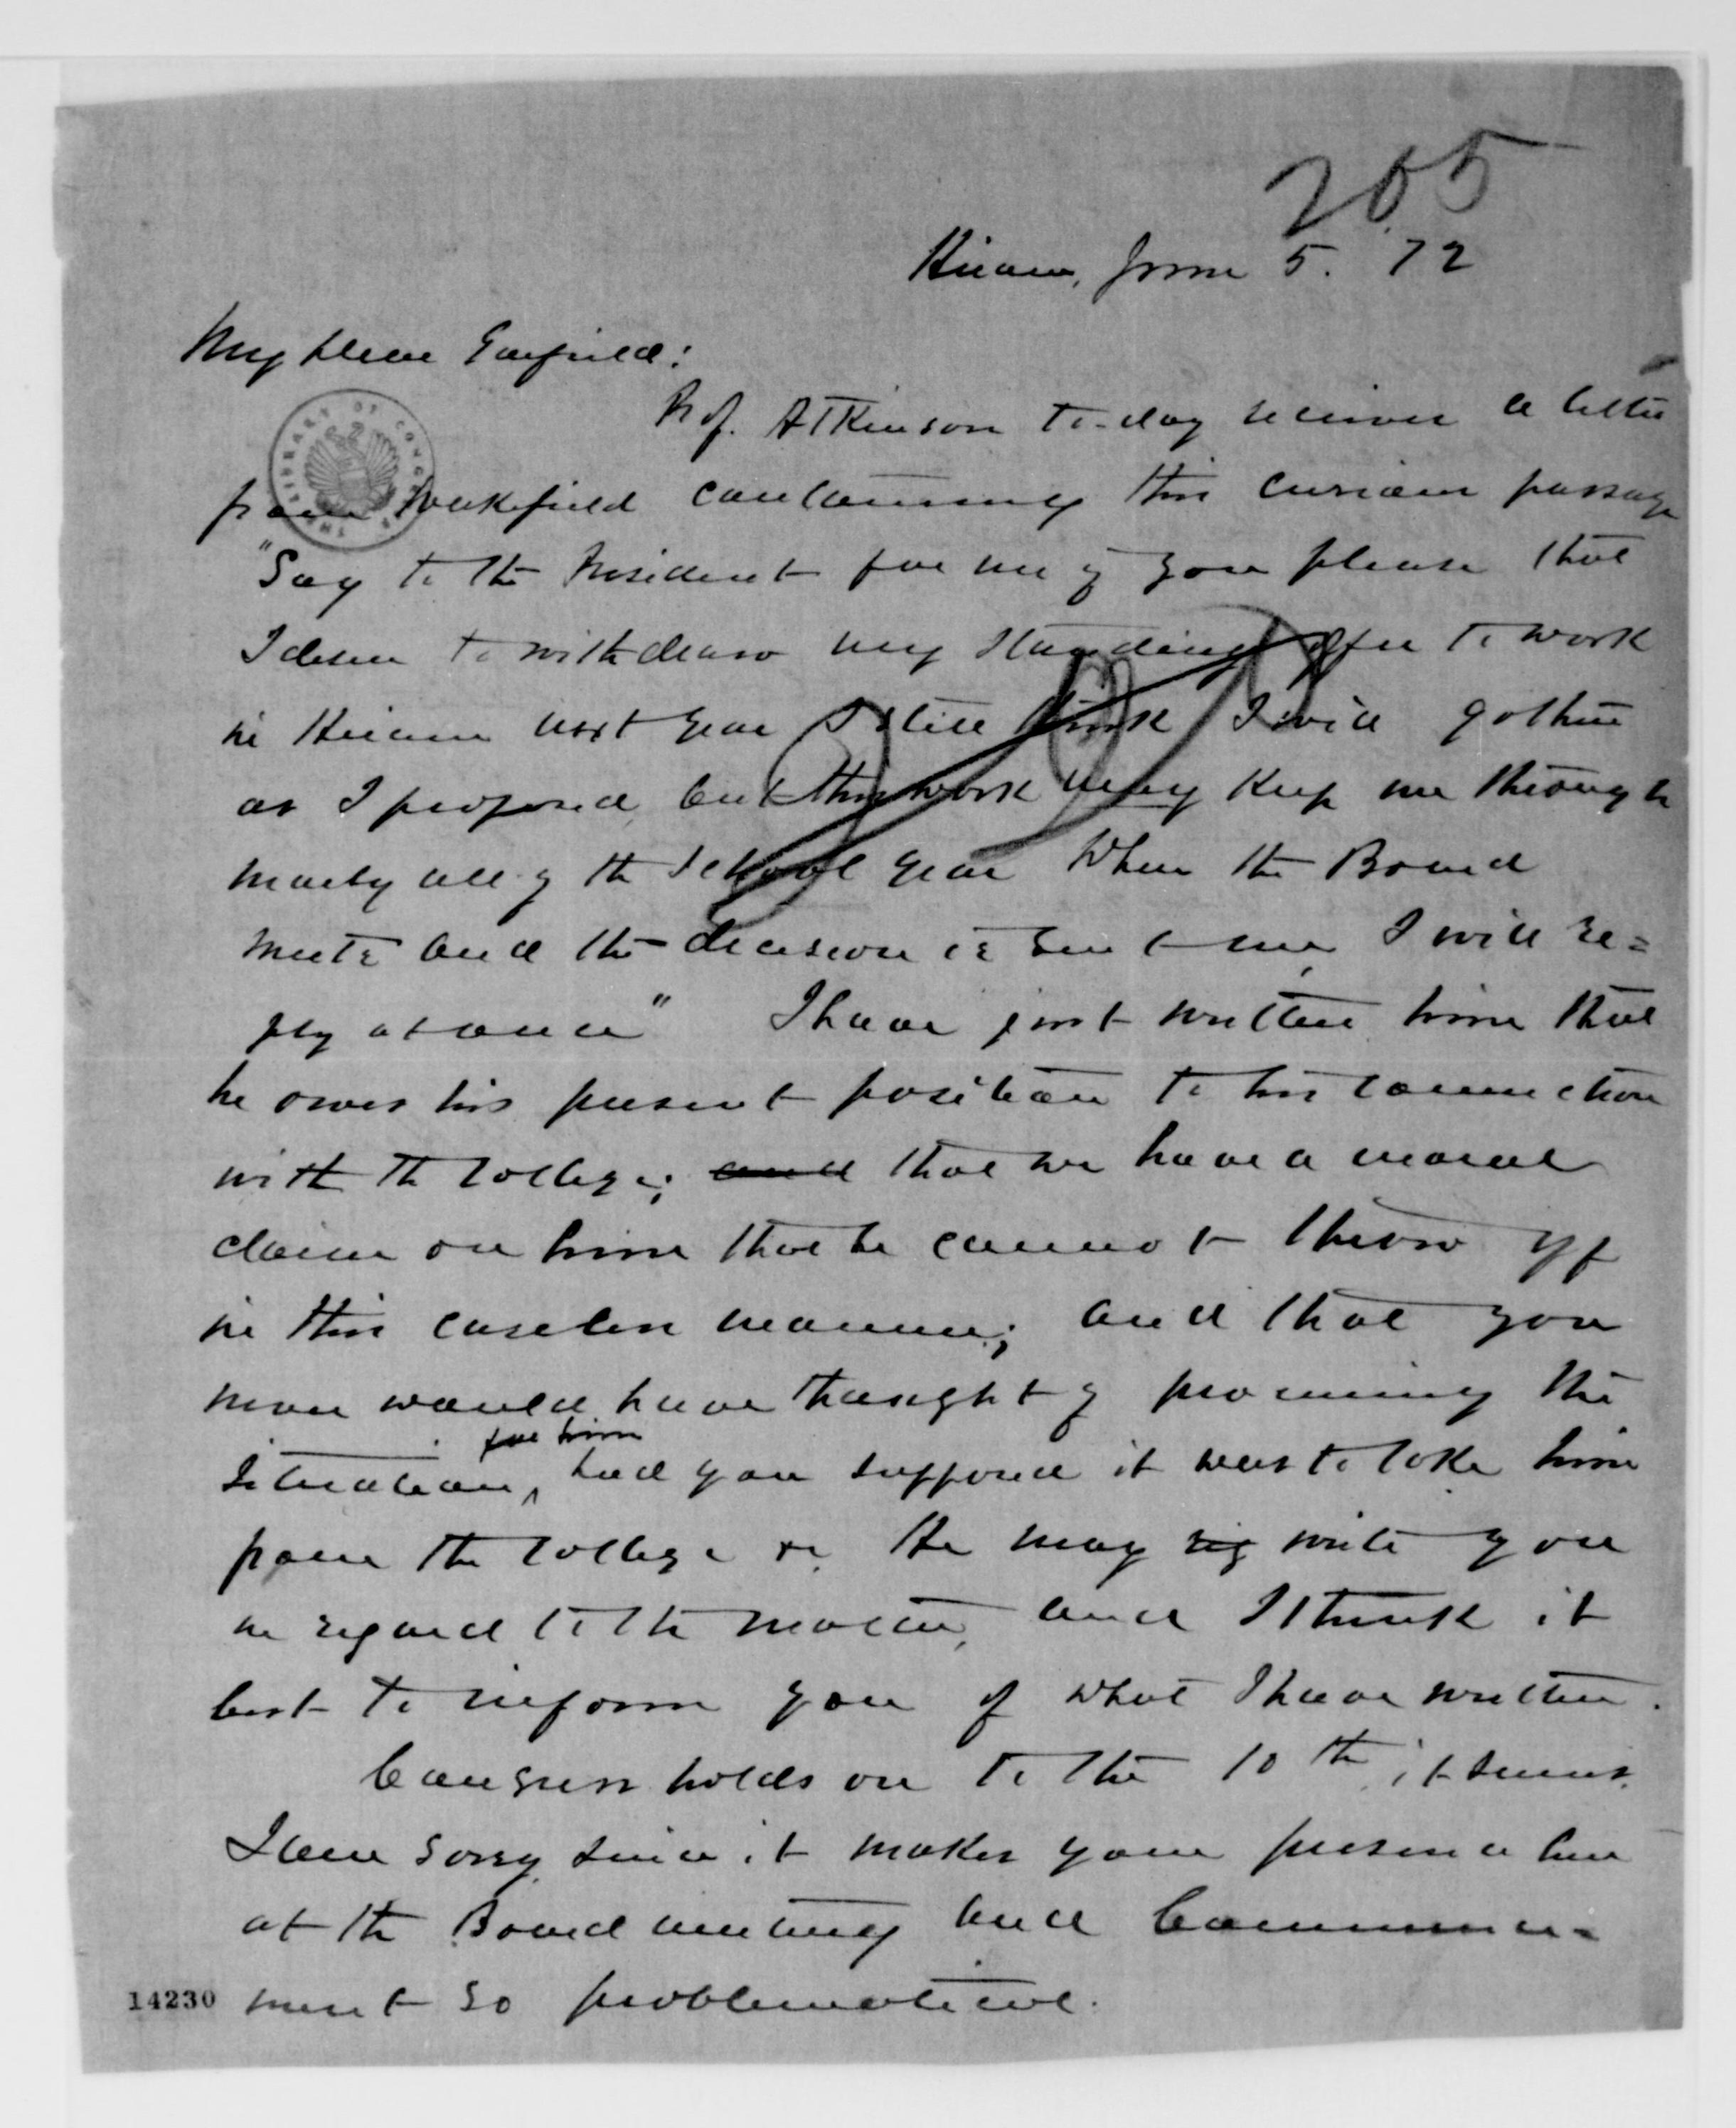 205
Hiram, June 5. 72
My dear Garfield:
Prof. Atkinson to-day receives a letter
from Wakefield containing this curious passage
"Say to the President for me if you please that
I desire to withdraw my standing offer to work
in Hiram next year I still think I will go there
as I proposed, but this work may keep me through
nearly all of the School year When the Board
meets and the decision is sent me, I will re=
ply at once" I have just written him that
he owes his present position to his connection
with the College; and that we have a moral
claim on him that he cannot throw off
in this careless manner; and that you
never would have thought of procuring the
situation, for him had you supposed it was to take him
from the College &c. He may write you
in regard to the matter, and I think it
best to inform you of what I have written.
Congress holds on to the 10th, it seems.
I am sorry since it makes your presence here
at the Board meeting and Commence=
ment so problematical.
14230
THE LIBRARY OF CONGRESS